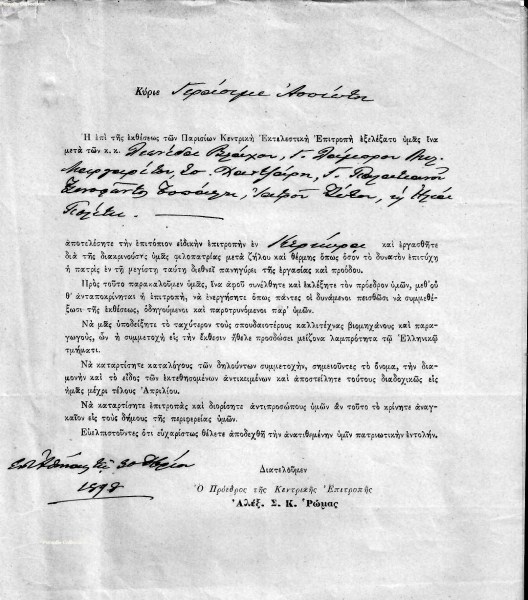 Κύριε Γεράσιμε
Ἡ ἐπὶ τῆς ἐκθέσεως τῶν Παρισίων Κεντρικὴ Ἐκτελεστικὴ Ἐπιτροπὴ ἐξελέξατο ὑμᾶς ἵνα
μετὰ τῶν κ. κ. Βλάχον, Γ.
Πολίτην
ἀποτελέσητε τὴν ἐπιτόπιον εἰδικὴν ἐπιτροπὴν ἐν Κερκύρᾳ καὶ ἐργασθῆτε
διὰ τῆς διακρινούσης ὑμᾶς φιλοπατρίας μετὰ ζήλου καὶ θέρμης ὅπως ὅσον τὸ δυνατὸν ἐπιτύχῃ
ἡ πατρὶς ἐν τῇ μεγίστῃ ταύτῃ διεθνεῖ πανηγύρει τῆς ἐργασίας καὶ προόδου.
Πρὸς τοῦτο παρακαλοῦμεν ὑμᾶς, ἵνα ἀφοῦ συνέλθητε καὶ ἐκλέξητε τὸν πρόεδρον ὑμῶν, μεθ' οὗ
θ' ἀνταποκρίνηται ἡ ἐπιτροπή, νὰ ἐνεργήσητε ὅπως πάντες οἱ δυνάμενοι πεισθῶσι νὰ συμμεθέ-
ξωσι τῆς ἐκθέσεως, ὁδηγούμενοι καὶ παροτρυνόμενοι παρ' ὑμῶν.
Νὰ μᾶς ὑποδείξητε τὸ ταχύτερον τοὺς σπουδαιοτέρους καλλιτέχνας βιομηχάνους καὶ παρα-
γωγούς, ὧν ἡ συμμετοχὴ εἰς τὴν ἔκθεσιν ἤθελε προσδώσει μείζονα λαμπρότητα τῷ Ἑλληνικῷ
τμήματι.
Νὰ καταρτίσητε καταλόγους τῶν δηλούντων συμμετοχήν, σημειοῦντες τὸ ὄνομα, τὴν δια-
μονὴν καὶ τὸ εἶδος τῶν ἐκτεθησομένων ἀντικειμένων καὶ ἀποστείλητε τούτους διαδοχικῶς εἰς
ἡμᾶς μέχρι τέλους Ἀπριλίου.
Νὰ καταρτίσητε ἐπιτροπὰς καὶ διορίσητε ἀντιπροσώπους ὑμῶν ἂν τοῦτο τὸ κρίνητε ἀναγ-
καῖον εἰς τοὺς δήμους τῆς περιφερείας ὑμῶν.
Εὐελπιστοῦντες ὅτι εὐχαρίστως θέλετε ἀποδεχθῆ τὴν ἀνατιθεμένην ὑμῖν πατριωτικὴν ἐντολήν.
Ἐν Ἀθήναις τῇ 30
1898
Διατελοῦμεν
Ὁ Πρόεδρος τῆς Κεντρικῆς Ἐπιτροπῆς
Ἀλέξ. Σ. Κ. Ῥώμας